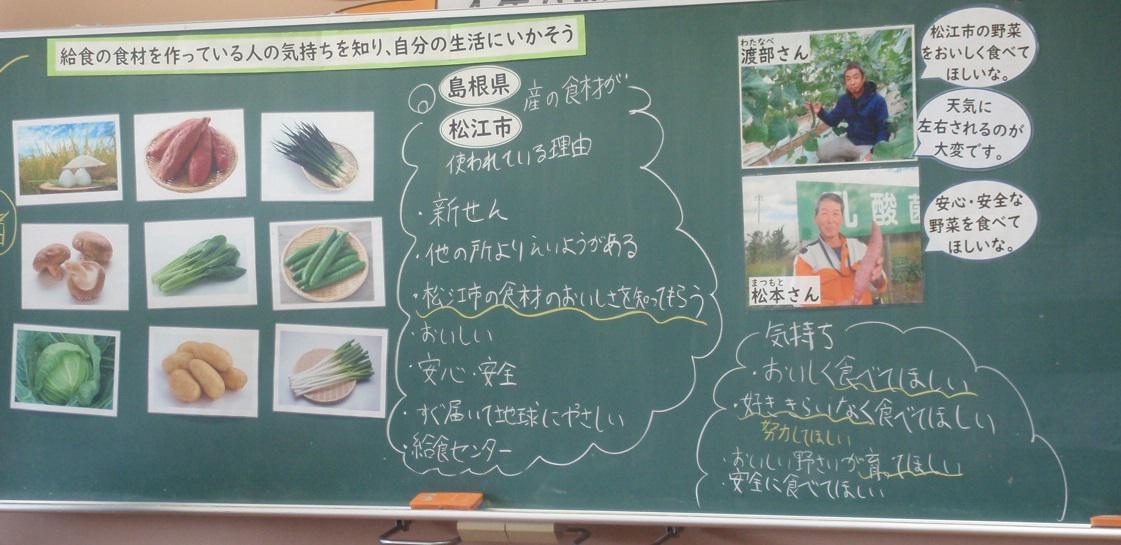 給食の食材を作っている人の気持ちを知り、自分の生活にいかそう
島根県
産の食材が
松江市
使われている理由
・新せん
・他の所よりえいようがある
・松江市の食材のおいしさを知ってもらう
・おいしい
・安心・安全
・すぐ届いて地球にやさしい
・給食センター
わたなべ
渡部さん
松江市の野菜
をおいしく食べて
ほしいな。
天気に
左右されるのが
大変です。
乳酸菌
まつもと
松本さん
安心・安全な
野菜を食べて
ほしいな。
気持ち
・おいしく食べてほしい
・好ききらいなく食べてほしい
努力してほしい
・おいしい野さいが育ってほしい
・安全に食べてほしい